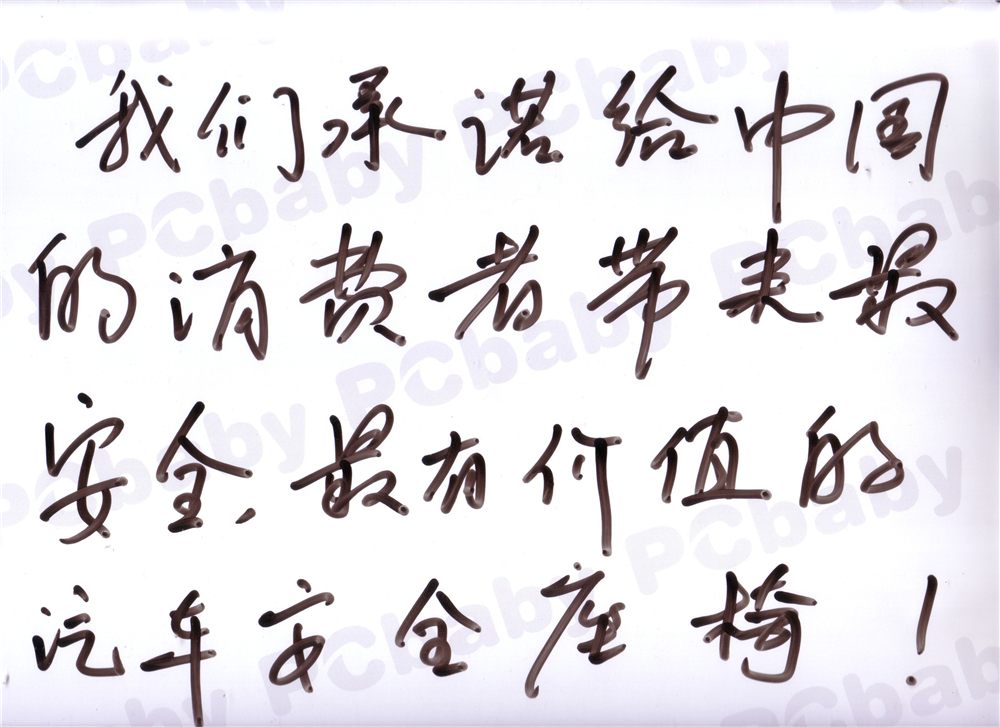 我们承诺给中国
的消费者带来最
安全、最有价值的
汽车安全座椅！
PCbaby